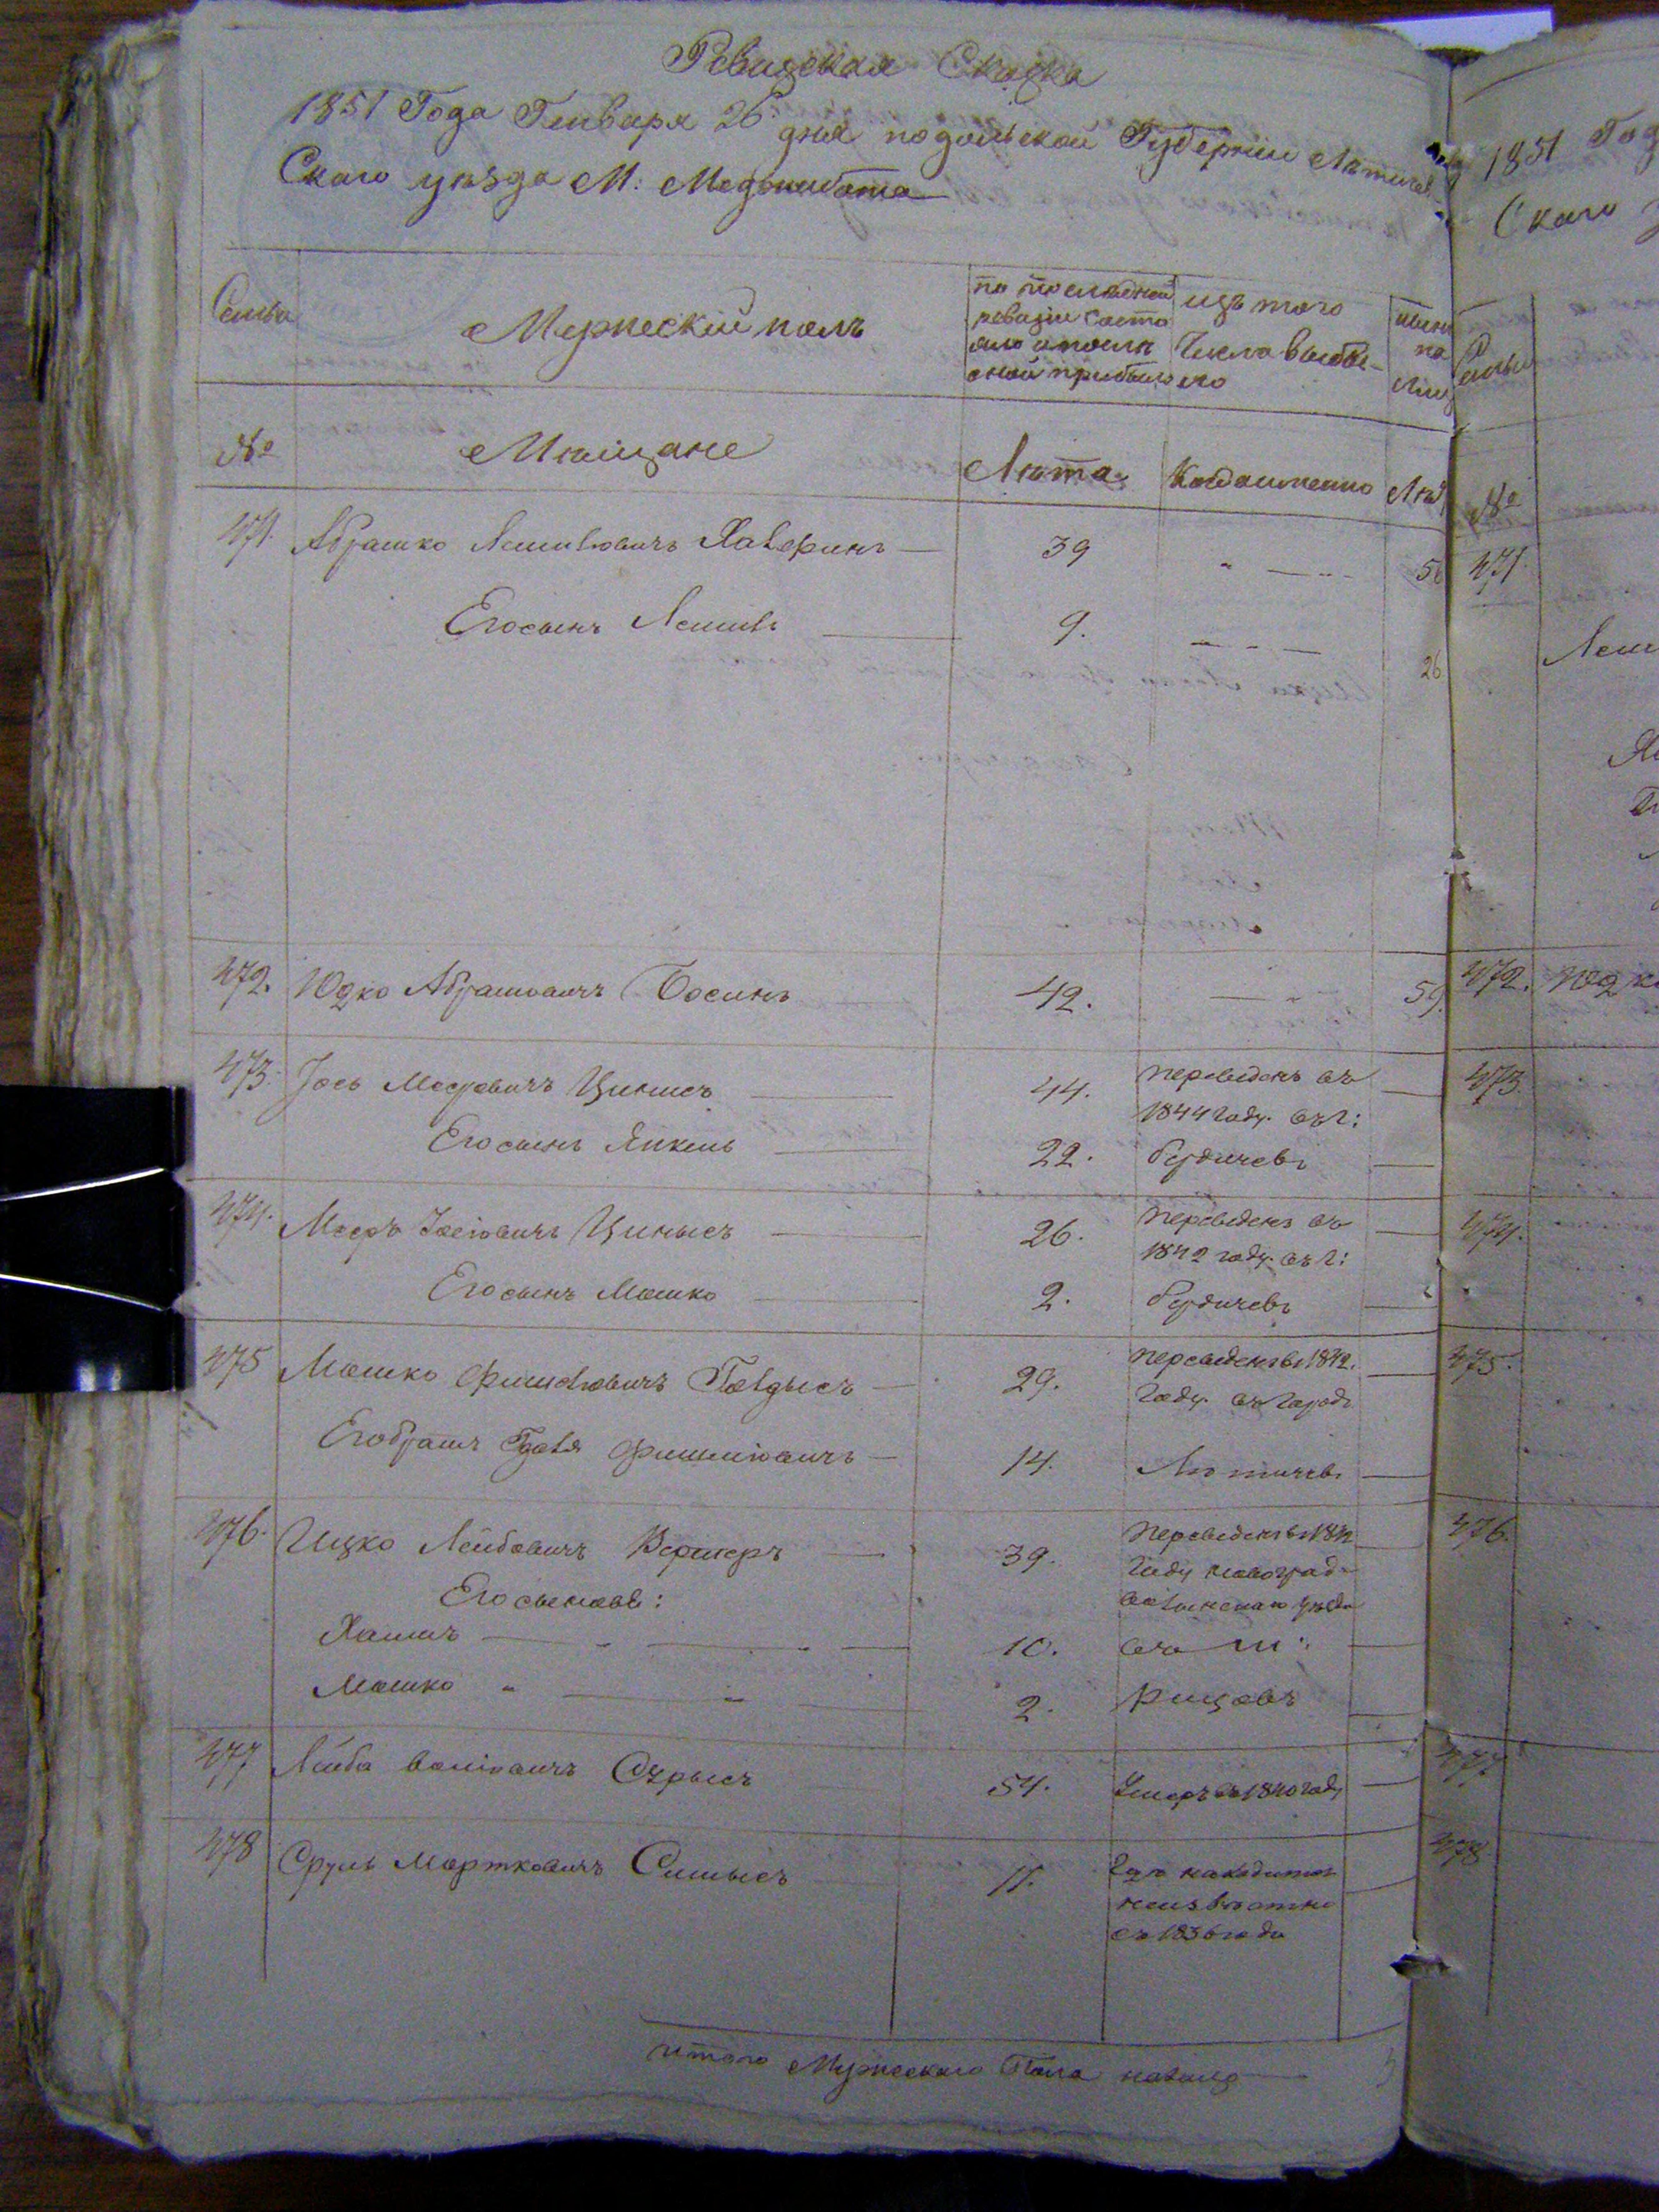 Ревизская Сказка
1851 Года Генваря 26 дня подольской Губернии Лѣтичев
Скаго уѣзда М: Меджибожа
Семьи
Мужескій полъ
по последней
ревизіи состо
яло и после
оной прибыло
изъ того
Числа выбы-
ло
нынѣ
на
лицо
№
Мѣщане
Лѣта
Когда именно
Лѣт
471. Абрамко Лейповичъ Халеринъ — 39 56
Его сынъ — 9. 26
472. Юдко Абрамовичъ Босинъ 42. 59.
473. Іось Мееровичъ Цинисъ 44. переведенъ въ
1844 году. въ г:
Его сынъ Янкель 22. бердичевъ
474. Мееръ Іосіовичъ Цинысъ 26. переведенъ въ
1842 году. въ г:
Его сынъ Мошко 2. бердичевъ
475 Мошко Фишелювичъ Голдысъ — 29. переведенъ въ 1842.
году. въ городъ
Его братъ Фишеліовичъ — 14. Лѣтичевъ
476. Ицко Лейбовичъ Вернеръ — 39. Переведенъ въ 1842
году новоград-
волынскаго уѣзда
Его сыновья:
Хаимъ 10. въ м:
Мошко 2.
477 Лейба 54. Умеръ въ 1840 году
478 Сруль Мортковичъ Симысъ 11. Где находится
неизвѣстно
съ 1836 года
итого Мужескаго Пола налицо
1851 Год
Скаго у
Семьи
№
471
Лейп
472. Юдк
473.
474.
475.
476.
477
478